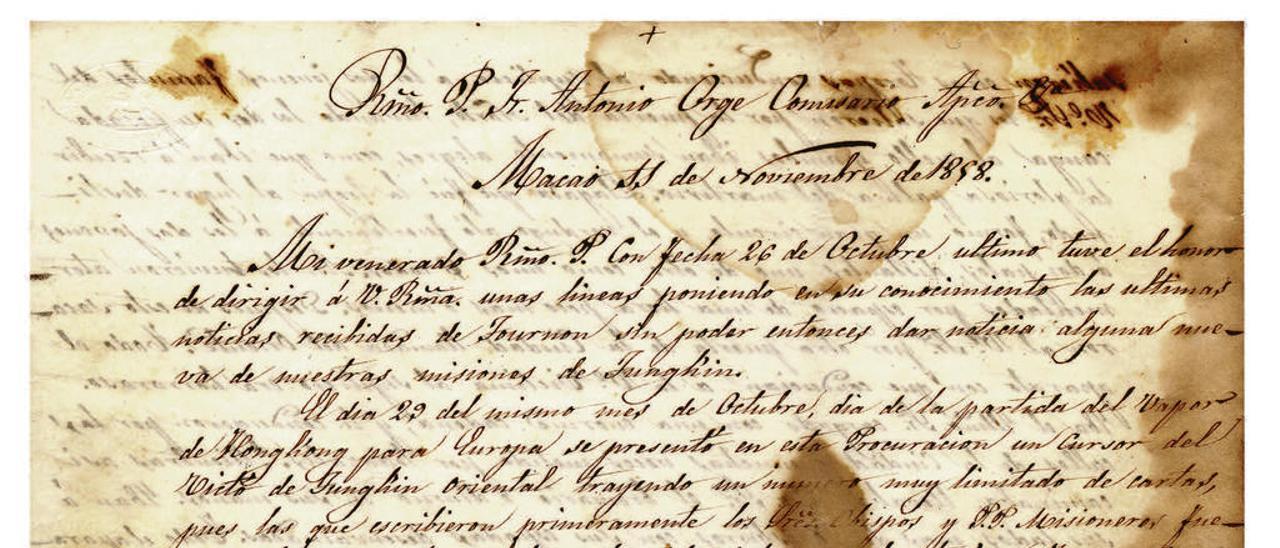 +
Rmõ. P. Fr. Antonio Orge Comisario Apcõ.
Macao 11 de Noviembre de 1858.
Mi venerado Rmõ. P. Con fecha 26 de Octubre ultimo tuve el honor
de dirigir á V. Rmã. unas lineas poniendo en su conocimiento las ultimas
noticias recibidas de Tournon sin poder entonces dar noticia alguna nue-
va de nuestras misiones de Tunghin.
El dia 29 del mismo mes de Octubre, dia de la partida del Vapor
de Hongkong para Europa se presentó en esta Procuracion un Cursor del
Victõ de Tunghin Oriental trayendo un numero muy limitado de cartas,
pues las que escribieron primeramente los Sres. Obispos y P.P. Misioneros fue-